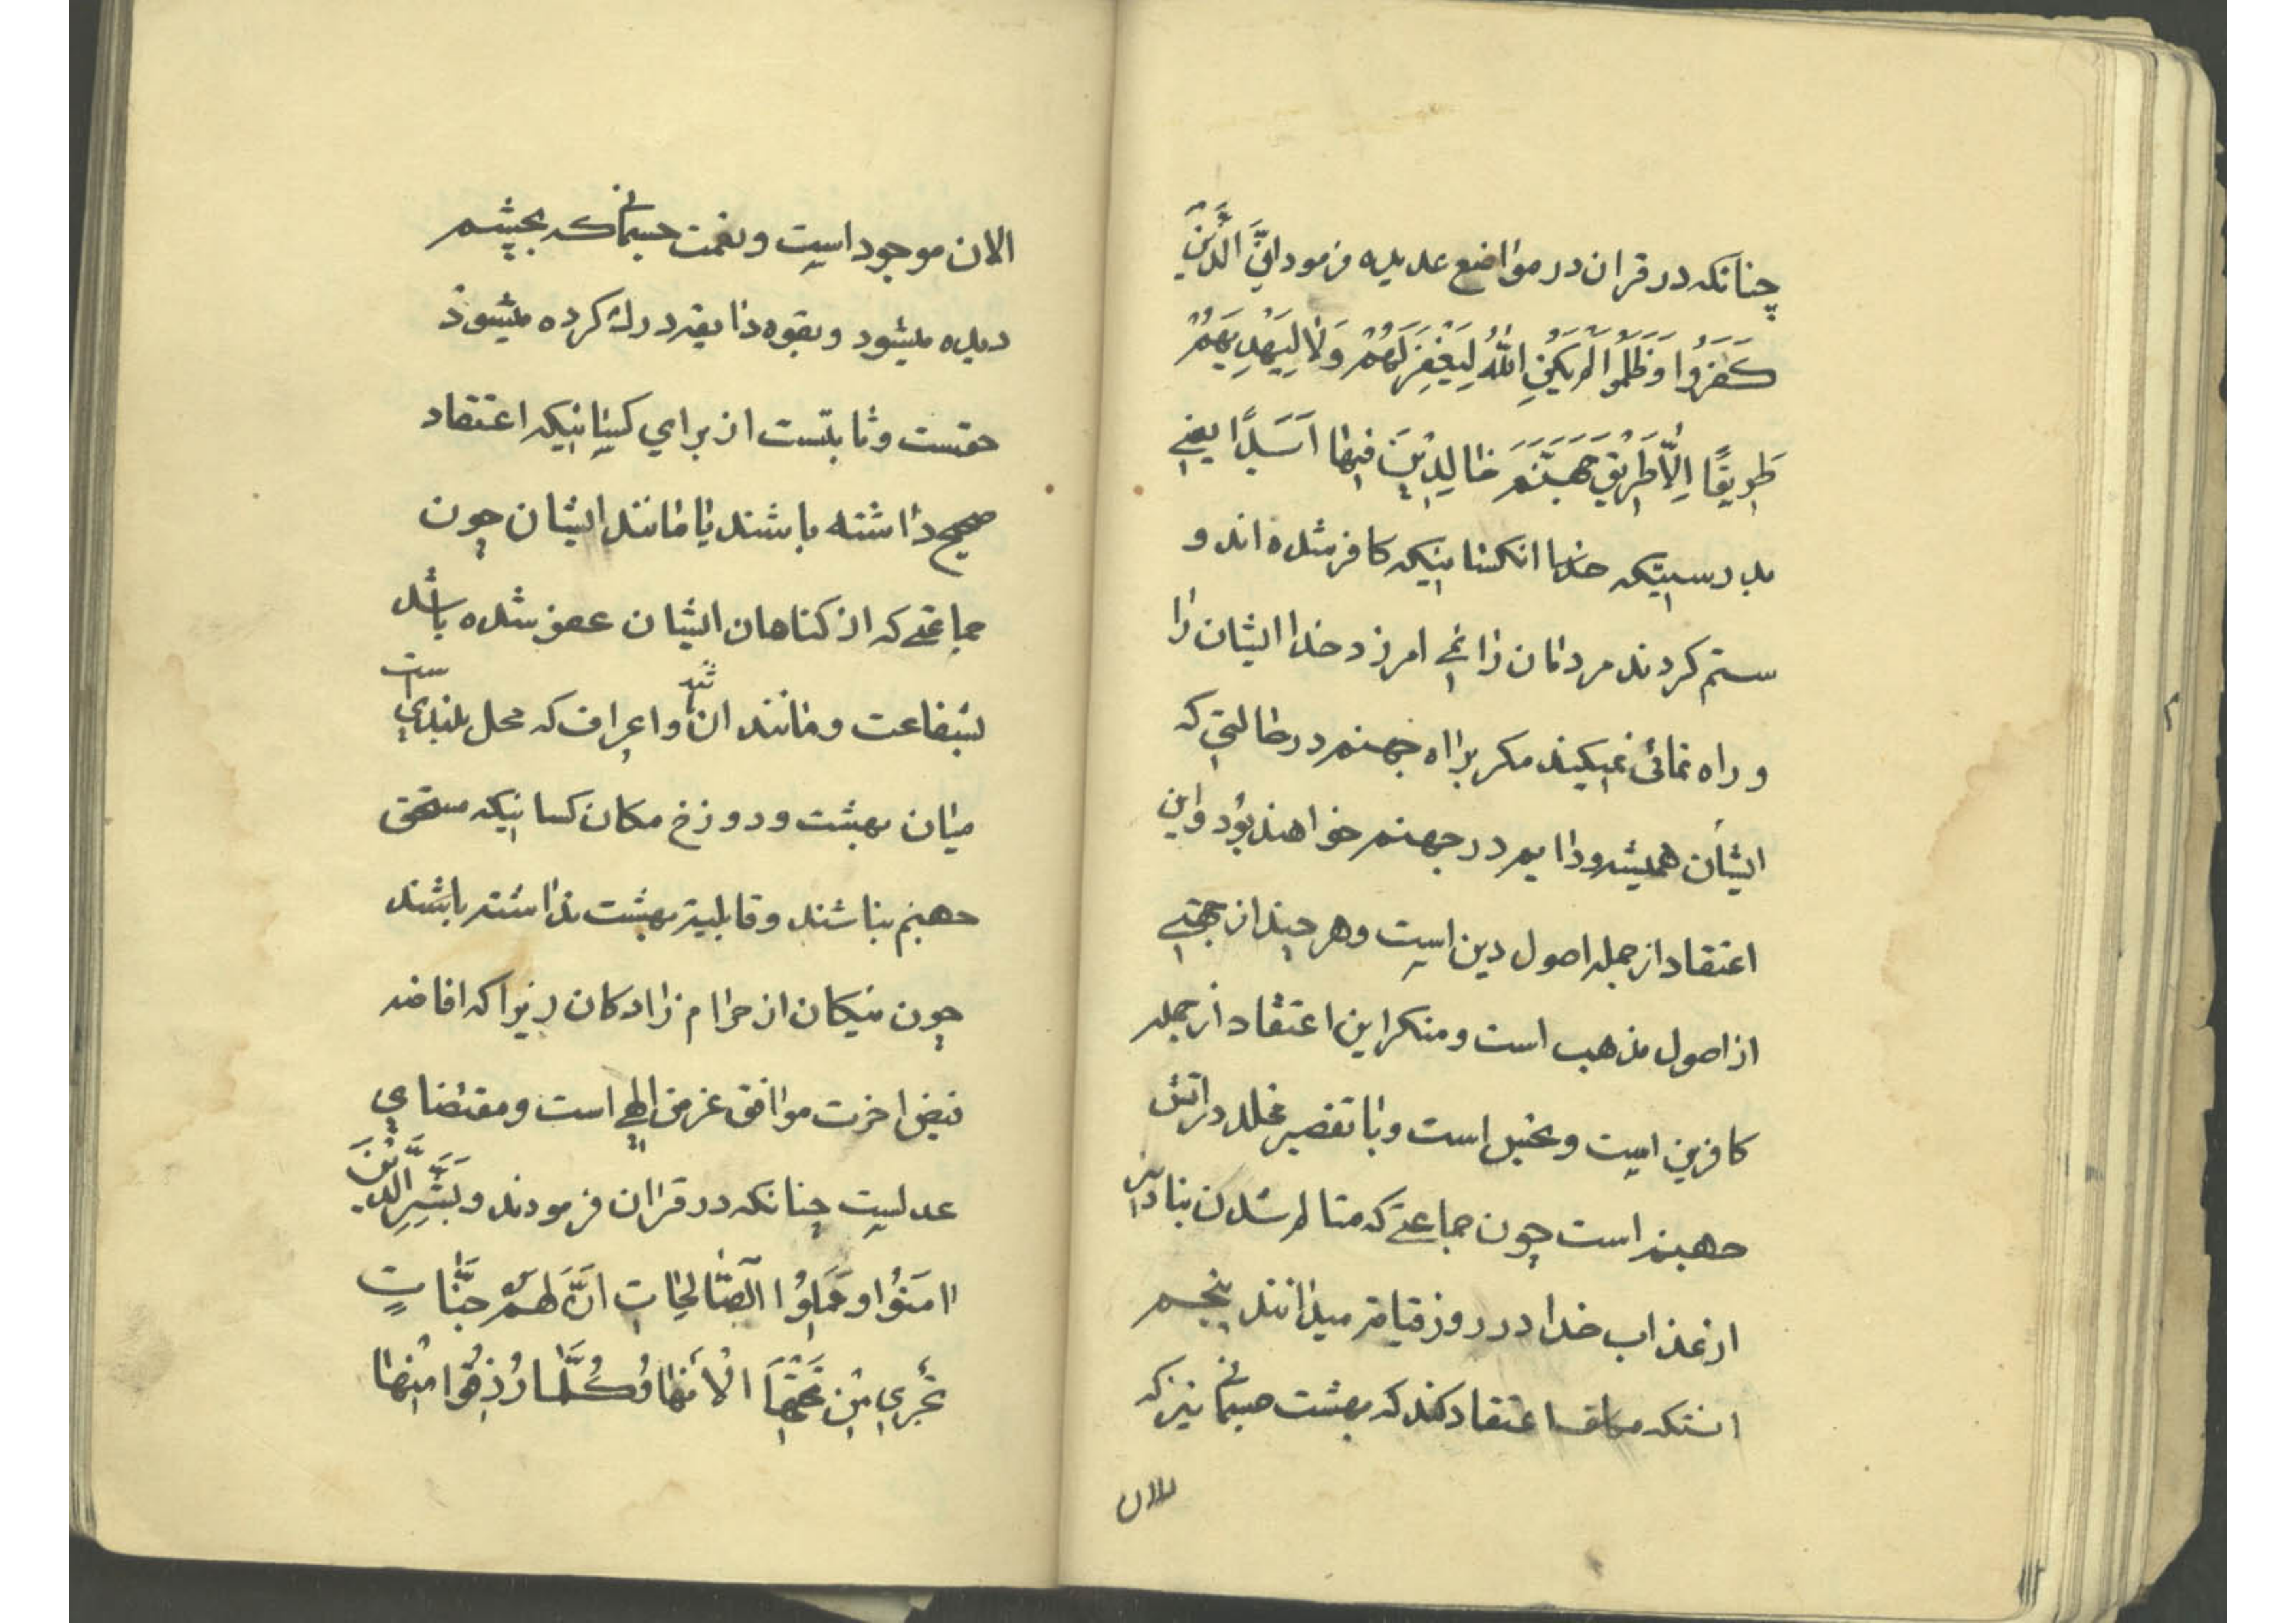 چنانکه در قران در مواضع عدیده فرمود اِنَّ الَّذینَ
کَفَرُوا وَ ظَلَمُوا لَمْ یَکُنِ اللّٰهُ لِیَغْفِرَ لَهُمْ وَ لا لِیَهْدِیَهُمْ
طَریقًا اِلّا طَریقَ جَهَنَّمَ خالِدینَ فیها اَبَدًا یعنی
بدرستیکه خدا انکسانیکه کافر شده اند و
ستم کردند مردمان را نمی امرزد خدا ایشان را
و راه نمائی نمیکند مکر براه جهنم در حالتی که
ایشان همیشه و دایم در جهنم خواهند بود و این
اعتقاد از جمله اصول دین است و هر چند از جهتی
از اصول مذهب است و منکر این اعتقاد از جمله
کافرین است و نجس است و با تقصیر مخلد در اتش
جهنم است چون جماعتی که متالم شدن بنا در
از عذاب خدا در روز قیامة میدانند پنجم
انستکه اعتقاد کند که بهشت جسمانی نیز که
الان
الان موجود است و نعمت جسمانی که بچشم
دیده میشود و بقوه ذایقه درك کرده میشود
حقست و ثابتست از برای کسانیکه اعتقاد
صحیح داشته باشند یا مانند ایشان چون
جماعتی که از کناهان ایشان عفو شده باشد
بشفاعت و مانند ان و اعراف که محل بلندی ست
میان بهشت و دوزخ مکان کسانیکه مستحق
جهنم نباشند و قابلیة بهشت نداشته باشند
چون نیکان از حرام زادکان زیرا که افاضه
فیض اخرت موافق غرض الهی است و مقتضای
عدلیت چنانکه در قران فرمودند و بَشِّرِ الَّذینَ
امَنُوا و عَمِلُوا الصّالِحاتِ اَنَّ لَهُمْ جَنّاتٍ
تَجْری مِنْ تَحْتِهَا الْأَنْهارُ کُلَّما رُزِقُوا مِنْها